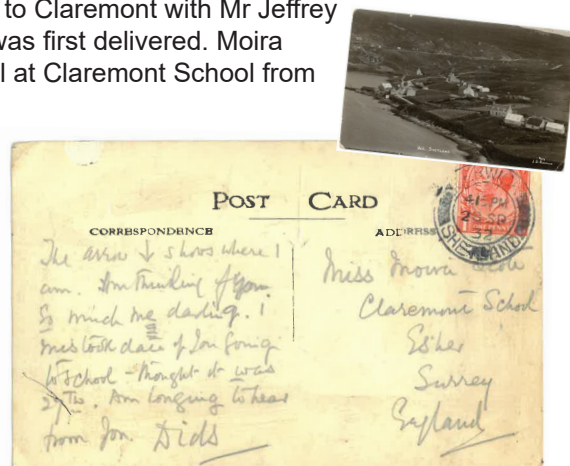 to Claremont with Mr Jeffrey
was first delivered. Moira
l at Claremont School from
POST CARD
CORRESPONDENCE
ADDRESS
The arrow ↓ shows where I
am. Am thinking of you
so much me darling. I
mistook date of you going
to school - thought it was
27th. Am longing to hear
from you. Dids
415 PM
SHETLAND
Miss Moira
Claremont School
Esher
Surrey
England